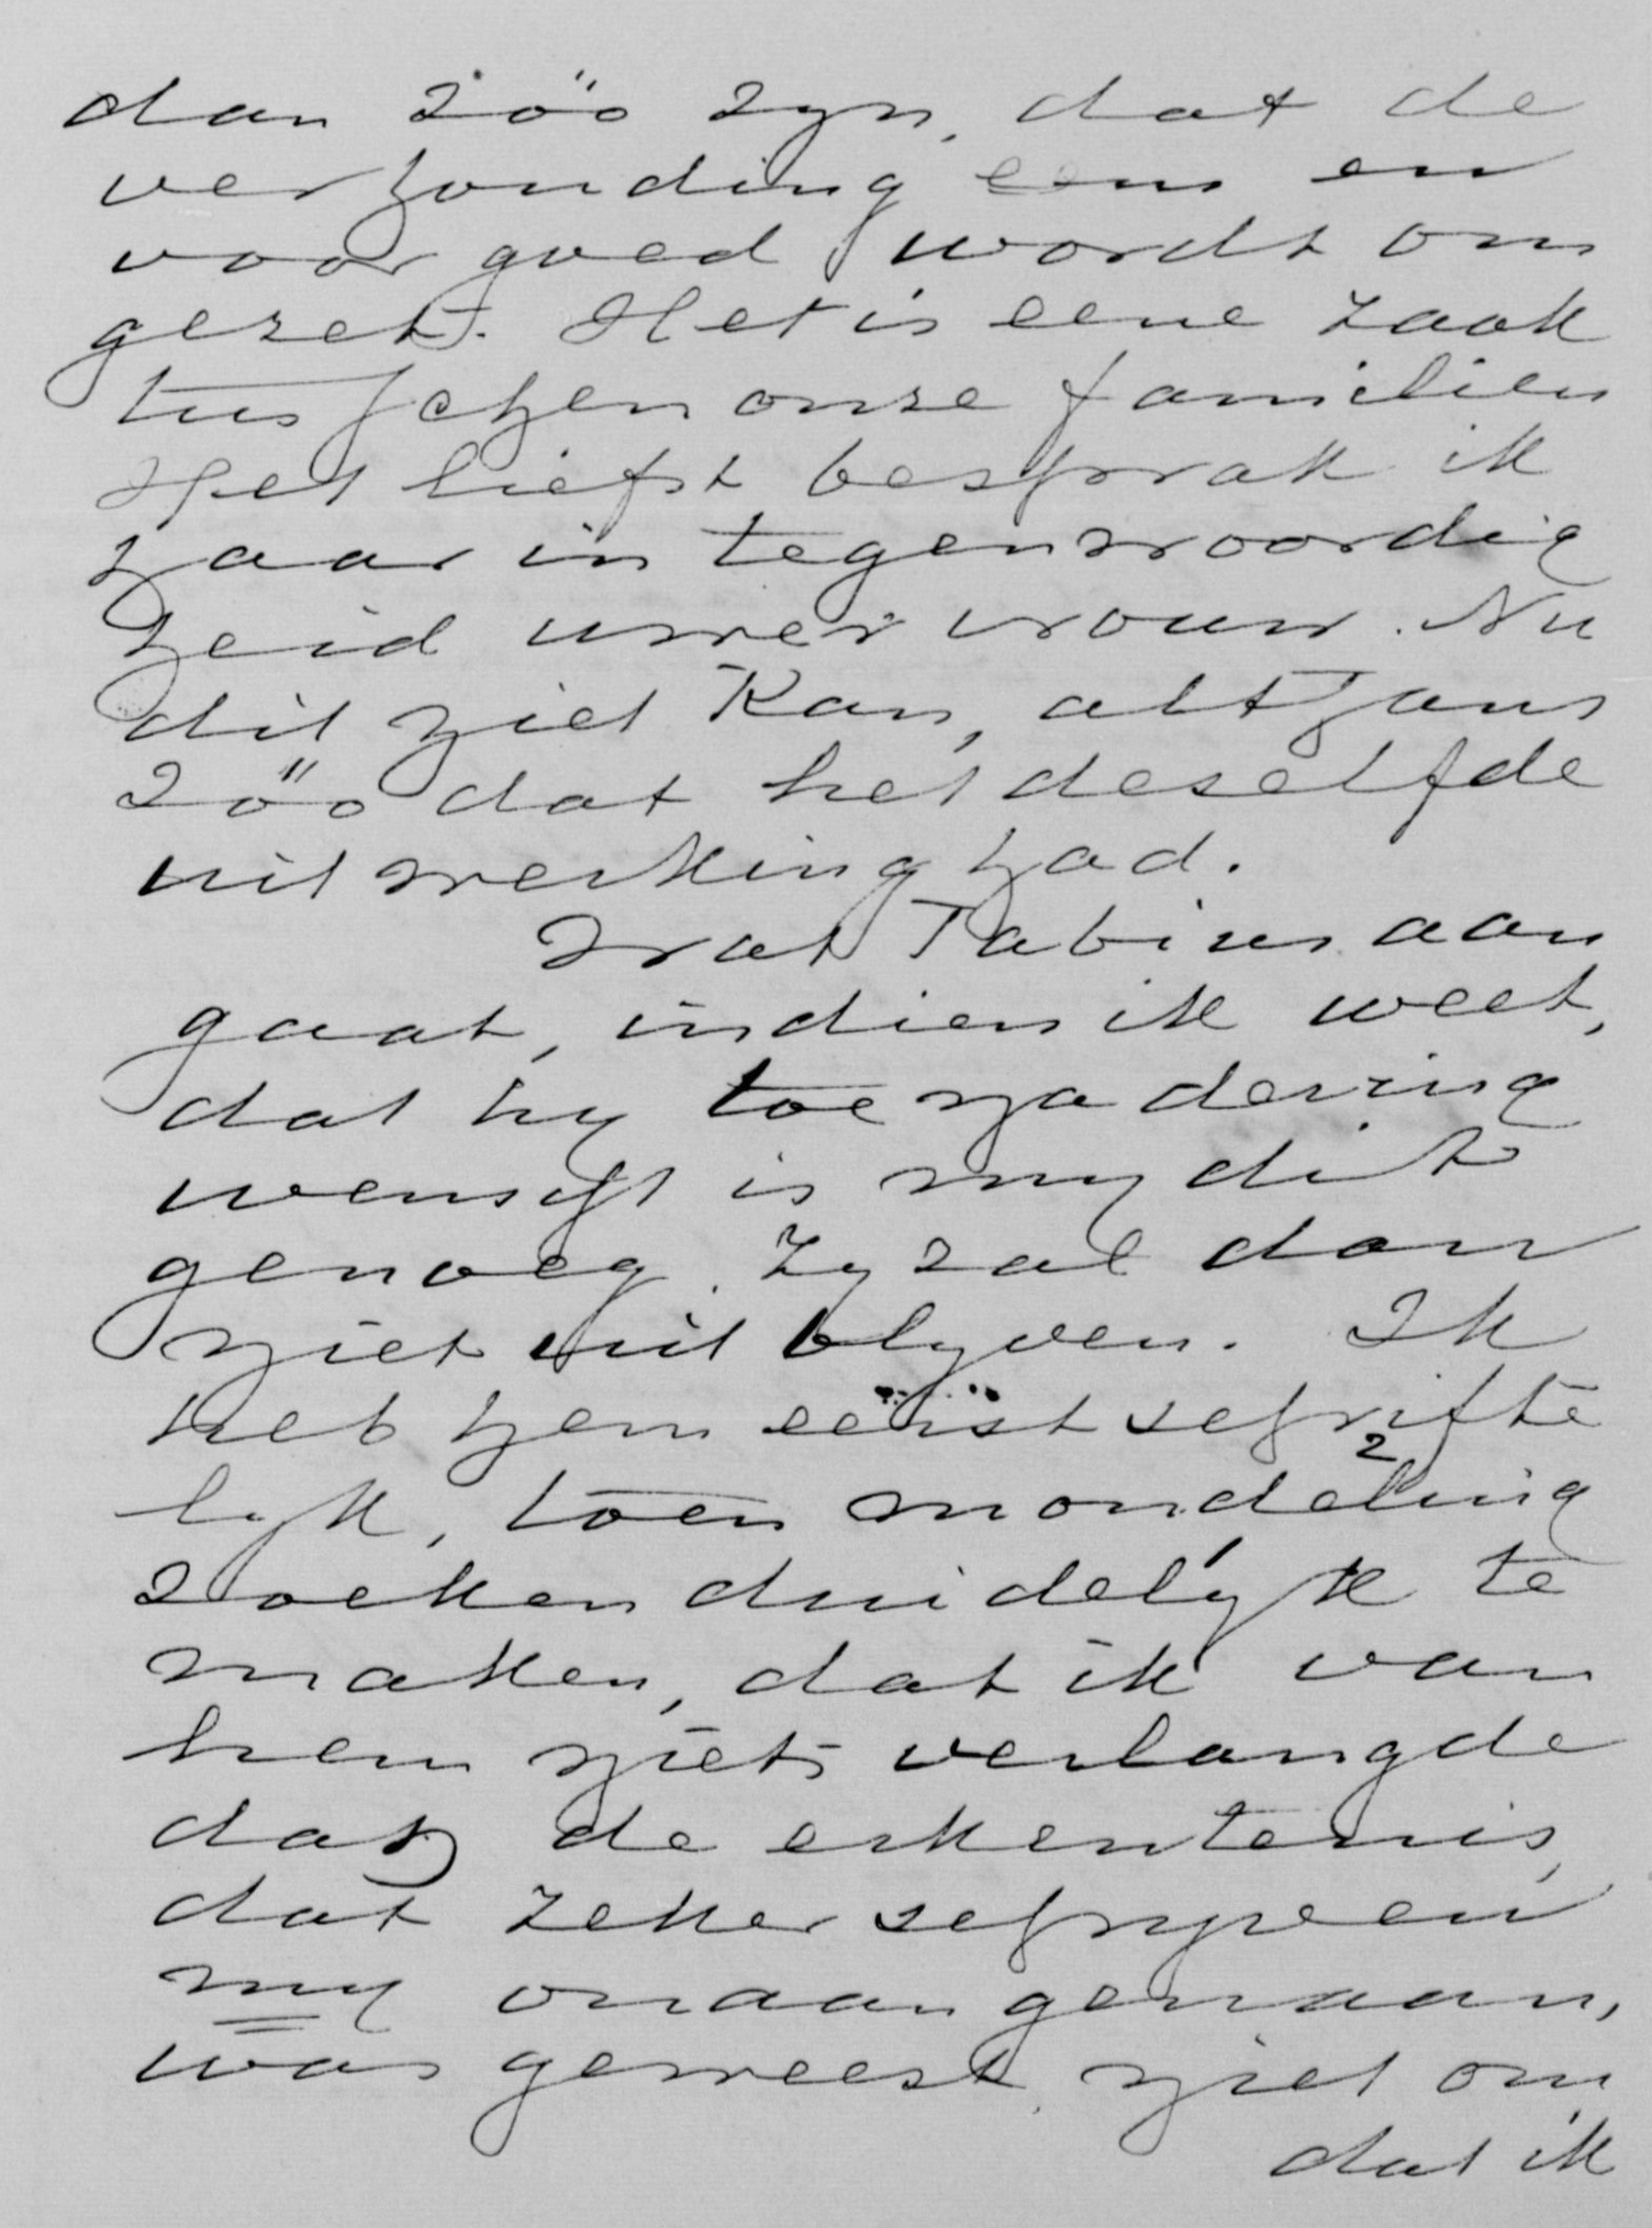 dan zóó zyn, dat de
verhouding eens en
voor goed wordt om
gezet. Het is eene zaak
tusschen onze familien
Het liefst besprak ik
haar in tegenwoordig
heid uwer vrouw. Nu
dit niet kan, althans
zóó dat het deselfde
uitwerking had.
Wat Tabius aan
gaat, indien ik weet,
dat hy toenadering
wenscht is my dit
genoeg. Zy zal dan
niet uit blyven. Ik
heb hem eerst schrifte
lyk, toen mondeling
zoeken duidelyk te
maken, dat ik van
hem niets verlangde
dan de erkentenis,
dat zeker schryven
my onaangenaam,
was geweest, niet om
dat ik